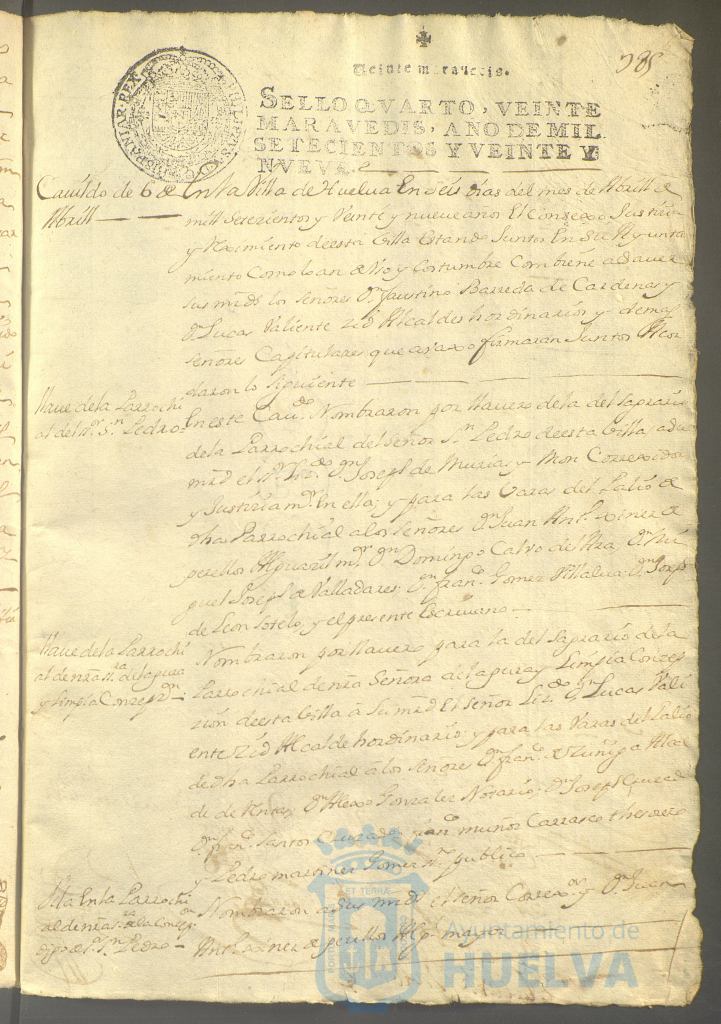 385
Veinte maravedis.
SELLO QVARTO, VEINTE
MARAVEDIS, AÑO DE MIL
SETECIENTOS Y VEINTE Y
NVEVE.
HISPANIAR REX
Cauildo de 6 de
Abrill
En la Villa de Huelva En seis dias del mes de Abrill de
mill Setezientos y Veinte y nueue años El Consexo Justizia
y Reximiento de esta Villa Estando Juntos En su Ayunta
miento Como lo an de Vso y Costumbre Combiene a Sauer
sus mrds los Señores Dn. Faustino Barreda de Cardenas y
Dn. Lucas Valiente Alcaldes hordinarios y demas
Señores Capitulares que avaxo firmaran Juntos Acor
daron lo Siguiente
llaue de la Parrochi
al del Sr. Sn. Pedro
En este Caudo. Nombraron por llauero de la del Sagrario
de la Parrochial del Señor Sn. Pedro de esta Villa a su
mrd el Sr. Lizdo. Dn. Joseph de Murias y Mon Correxidor
y Justizia mr. En ella; y para las Varas del Palio de
dha Parrochial a los Señores Dn. Juan Anto. Ximenez
Alguazil mr. Dn. Domingo Calvo del Dn. Mi
guel Joseph de Valladares; Dn. Franco. Gomez Villalua; Dn. Joseph
de Leon Sotelo, y el presente Escriuano
llaue de la Parrochi
al de nra Sra. de la pura
y Limpia Conzepzn.
Nombraron por llauero para la del Sagrario de la
Parrochial de nra Señora de la pura y Limpia Conzep
zion de esta Villa á Su mrd El Señor Lizdo. Dn. Lucas Vali
ente Alcalde hordinario; y para las Varas del Palio
de dha Parrochial a los Señores Dn. Franco. de Zuñiga Alcal
de de Dn. Alexo Gonzalez Notario; Dn. Joseph
Dn. Santos Franco. muños Carrasco thesorero
y Pedro publico
En la Parrochi
al de nra Sra. de la Conzn.
digo de Sr. Sn. Pedro
Nombraron a sus mrds el señor Correxor. y Dn. Juan
Anto. Ximenez Alg. mayor
Ayuntamiento de
HUELVA